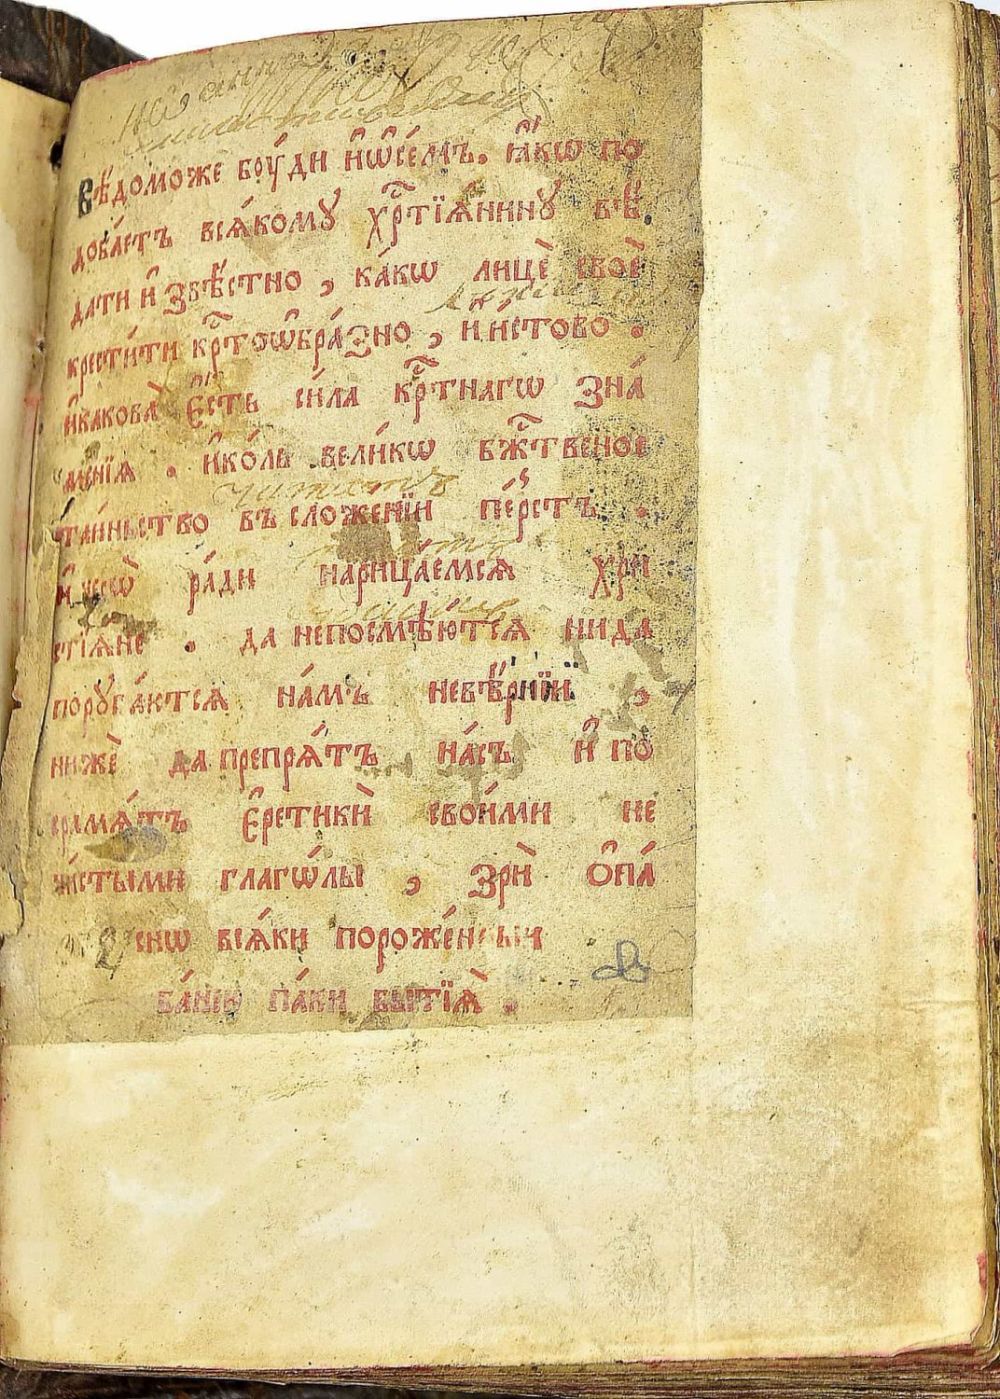 Вѣ́доможе бꙋ́ди и҆ѡ҆се́мъ. ꙗ҆́кѡ по
доба́етъ вся́комꙋ хрⷭ҇тїѧ́нинꙋ вѣ́
дати и҆ звѣ́стно , ка́кѡ лицѐ своѐ
крести́ти крⷭ҇тоѡ҆бра́зно , и҆ и҆́стово .
и҆какова̀ є҆́сть си́ла крⷭ҇тнагѡ зна́
мєнїѧ . и҆ко́ль вели́кѡ бж҃твеное
та́иньство въ сложе́нїи пе́рстъ .
и҆ чесѡ̀ ра́ди нарица́емсѧ хри
стїѧ́не . да непосмѣю́тсѧ нида
порꙋга́ютсѧ на́мъ невѣ́рнїи ,
нижѐ да препрѧ́тъ на́съ и҆ по
срамѧ́тъ є҆ретикѝ свои́ми не
чи́стыми глаго́лы , зрѝ ѻ҆па́
снѡ всѧ́ки пороже́нныи
ба́нею па́ки бытїѧ̀ .